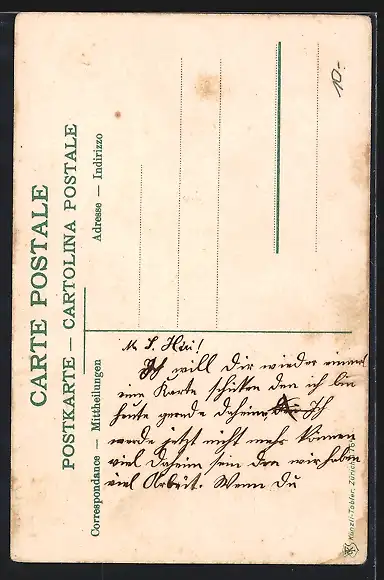 CARTE POSTALE
POSTKARTE — CARTOLINA POSTALE
Adresse — Indirizzo
Correspondance — Mittheilungen
10.-
M. S.
Ich will dir wieder einmal
eine Karte schiken den ich bin
heute gerade daheim Ich
werde jetzt nicht mehr können
viel daheim sein den wir haben
viel Arbeit. Wenn du
Künzli-Tobler, Zürich